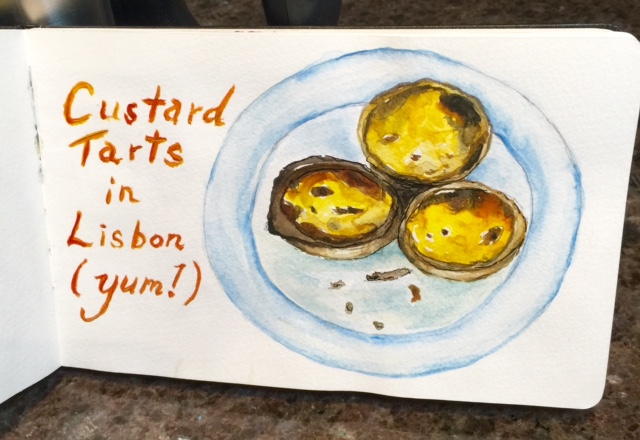 Custard
Tarts
in
Lisbon
(yum!)